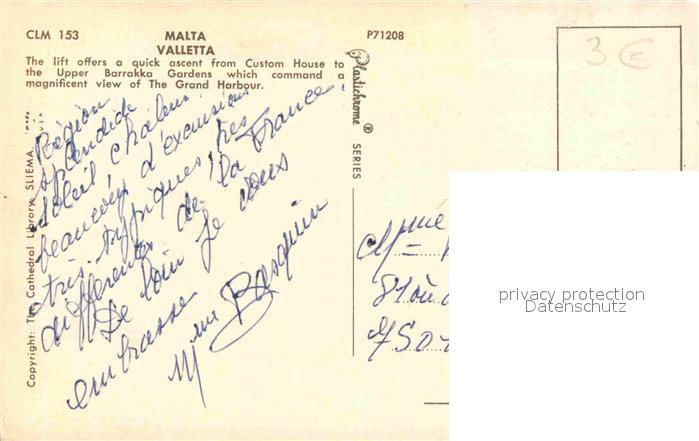 CLM 153
MALTA
VALLETTA
P71208
The lift offers a quick ascent from Custom House to
the Upper Barrakka Gardens which command a
magnificent view of The Grand Harbour.
Plastichrome ®
SERIES
Copyright: The Cathedral Library, SLIEMA
U S A
3 €
Région
splendide
soleil chaleur
beaucoup d'excursions
très typiques, très
différentes de la France.
De loin je vous
embrasse
Mme Basquin
Mme
privacy protection
Datenschutz